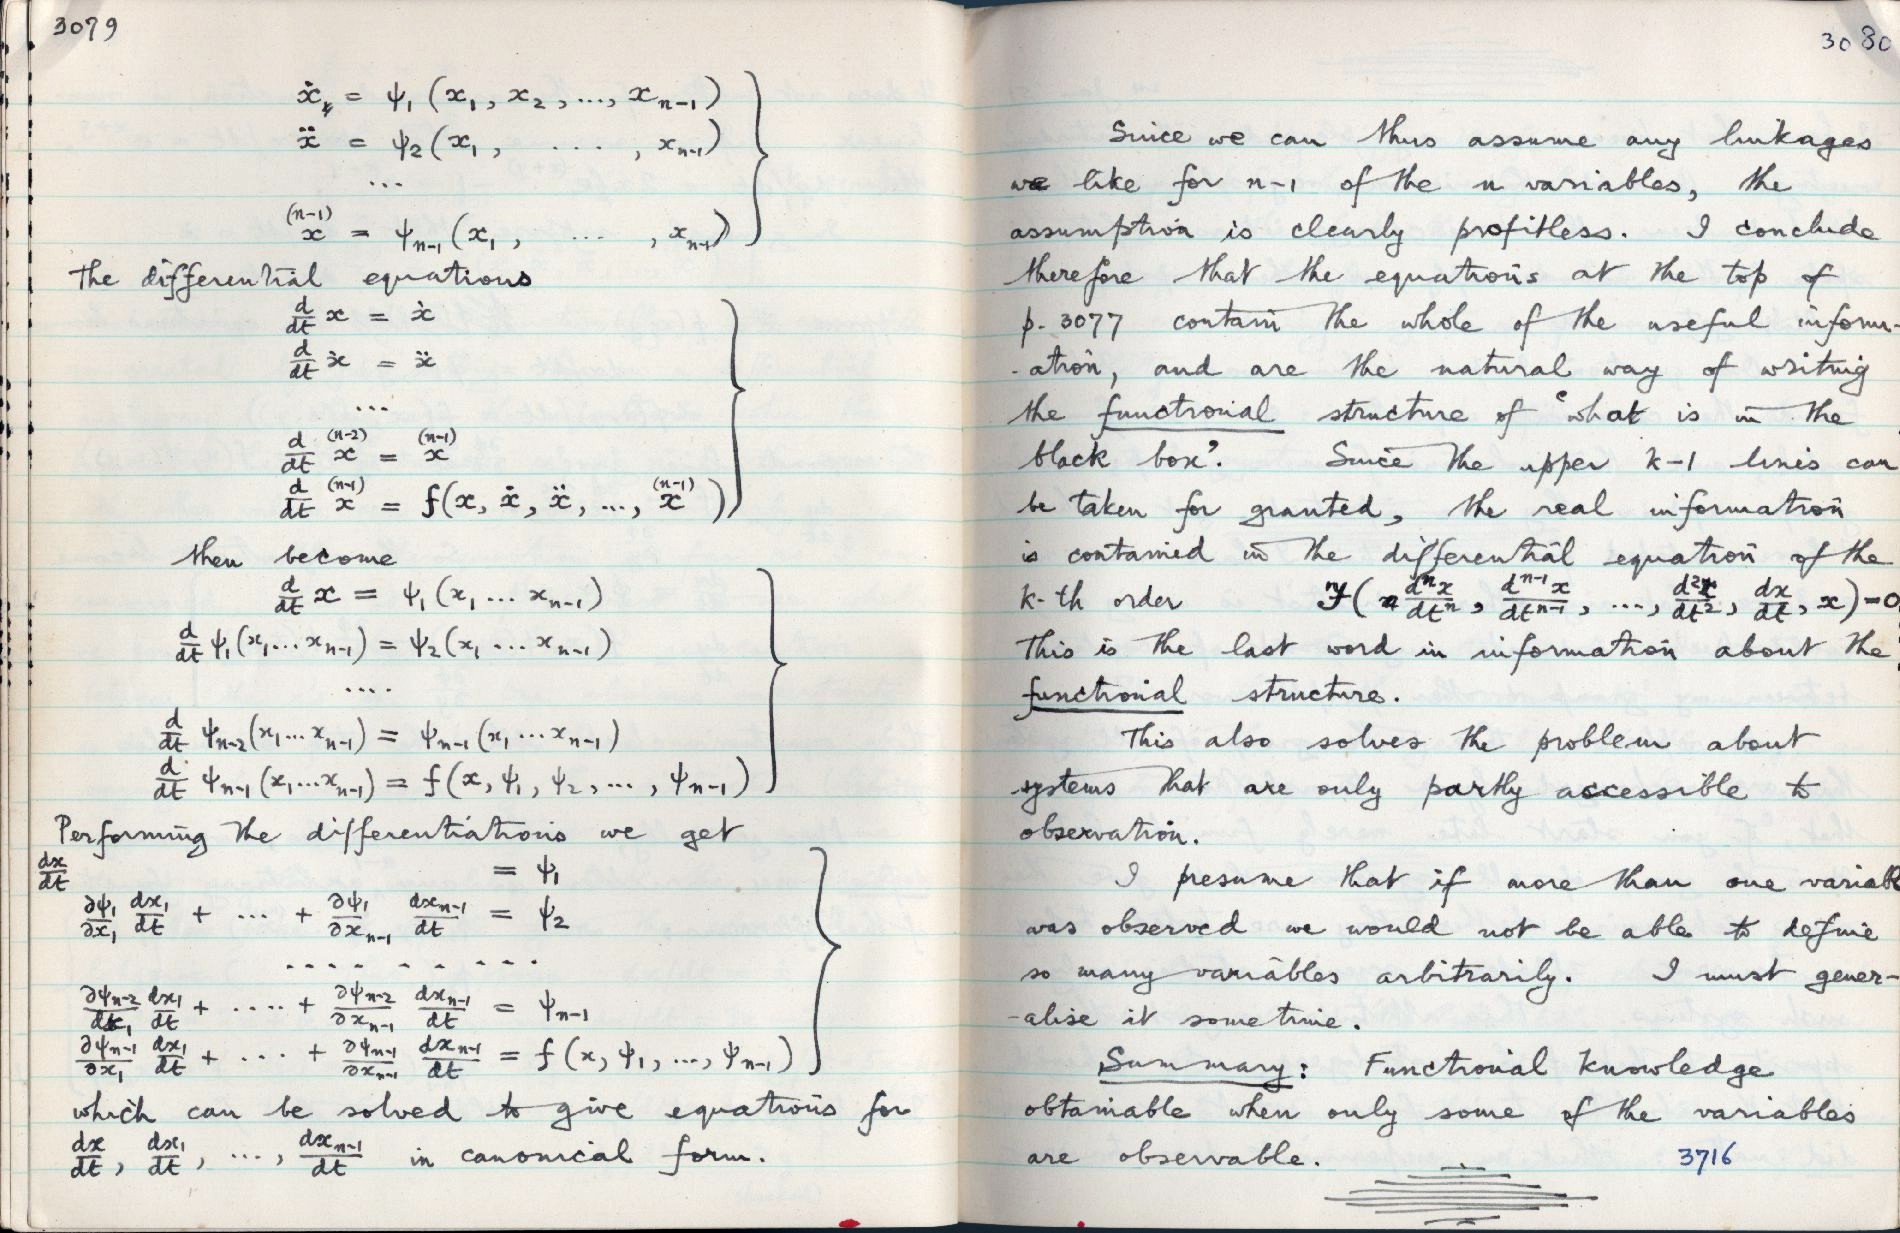 3079
ẋ = ψ₁ (x₁, x₂, ..., xₙ₋₁)
ẍ = ψ₂ (x₁, ... , xₙ₋₁)
...
x⁽ⁿ⁻¹⁾ = ψₙ₋₁ (x₁, ... , xₙ₋₁)
The differential equations
d/dt x = ẋ
d/dt ẋ = ẍ
...
d/dt x⁽ⁿ⁻²⁾ = x⁽ⁿ⁻¹⁾
d/dt x⁽ⁿ⁻¹⁾ = f(x, ẋ, ẍ, ..., x⁽ⁿ⁻¹⁾)
then become
d/dt x = ψ₁ (x₁ ... xₙ₋₁)
d/dt ψ₁(x₁...xₙ₋₁) = ψ₂(x₁ ... xₙ₋₁)
....
d/dt ψₙ₋₂(x₁...xₙ₋₁) = ψₙ₋₁(x₁ ... xₙ₋₁)
d/dt ψₙ₋₁(x₁...xₙ₋₁) = f(x, ψ₁, ψ₂, ..., ψₙ₋₁)
Performing the differentiations we get
dx/dt = ψ₁
∂ψ₁/∂x₁ dx₁/dt + ... + ∂ψ₁/∂xₙ₋₁ dxₙ₋₁/dt = ψ₂
. . . . . . . . .
∂ψₙ₋₂/∂x₁ dx₁/dt + .... + ∂ψₙ₋₂/∂xₙ₋₁ dxₙ₋₁/dt = ψₙ₋₁
∂ψₙ₋₁/∂x₁ dx₁/dt + ... + ∂ψₙ₋₁/∂xₙ₋₁ dxₙ₋₁/dt = f(x, ψ₁, ..., ψₙ₋₁)
which can be solved to give equations for
dx/dt, dx₁/dt, ..., dxₙ₋₁/dt in canonical form.
3080
Since we can thus assume any linkages
we like for n-1 of the n variables, the
assumption is clearly profitless. I conclude
therefore that the equations at the top of
p. 3077 contain the whole of the useful inform-
-ation, and are the natural way of writing
the functional structure of 'what is in the
black box'. Since the upper k-1 lines can
be taken for granted, the real information
is contained in the differential equation of the
k-th order f(dⁿx/dtⁿ, dⁿ⁻¹x/dtⁿ⁻¹, ..., d²x/dt², dx/dt, x)=0
This is the last word in information about the
functional structure.
This also solves the problem about
systems that are only partly accessible to
observation.
I presume that if more than one variable
was observed we would not be able to define
so many variables arbitrarily. I must gener-
-alise it sometime.
Summary: Functional knowledge
obtainable when only some of the variables
are observable. 3716